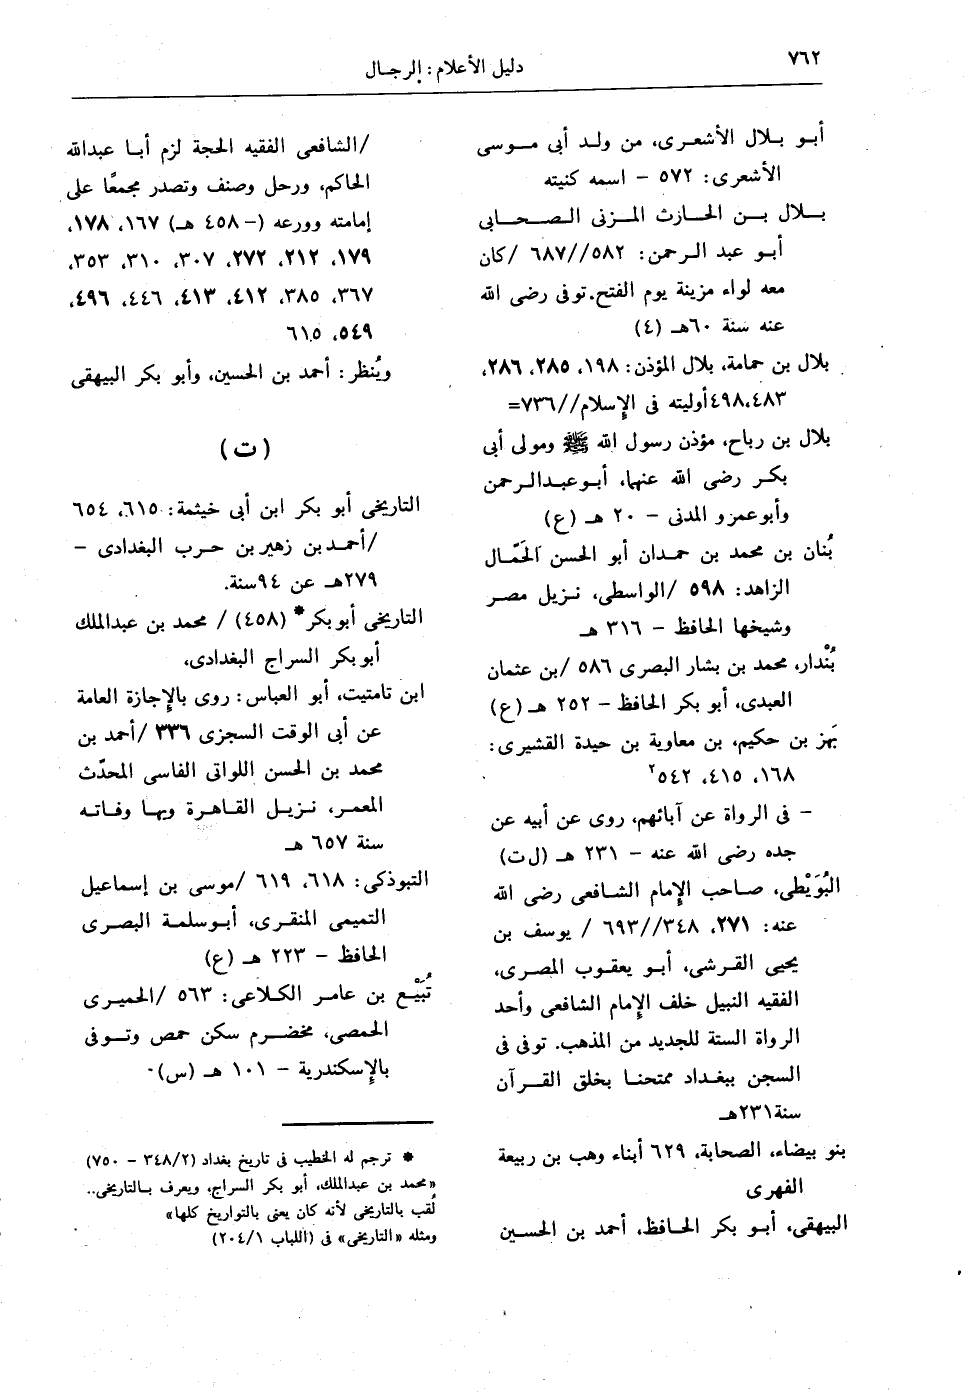 ٧٦٢
دليل الأعلام: الرجال
أبو بلال الأشعرى، من ولد أبى موسى
الأشعرى: ٥٧٢ - اسمه كنيته
بلال بن الحارث المزنى الصحابى
أبو عبد الرحمن: ٥٨٢//٦٨٧ /كان
معه لواء مزينة يوم الفتح. توفى رضى الله
عنه سنة ٦٠هـ (٤)
بلال بن حمامة، بلال المؤذن: ١٩٨، ٢٨٥، ٢٨٦،
٤٨٣،٤٩٨ أوليته فى الإسلام//٧٣٦=
بلال بن رباح، مؤذن رسول الله ﷺ ومولى أبى
بكر رضى الله عنهما، أبو عبدالرحمن
وأبو عمرو المدنى - ٢٠ هـ (ع)
بُنان بن محمد بن حمدان أبو الحسن الحَمَّال
الزاهد: ٥٩٨ /الواسطى، نزيل مصر
وشيخها الحافظ - ٣١٦ هـ
بُنْدار، محمد بن بشار البصرى ٥٨٦ /بن عثمان
العبدى، أبو بكر الحافظ - ٢٥٢ هـ (ع)
بَهز بن حكيم، بن معاوية بن حيدة القشيرى:
١٦٨، ٤١٥، ٥٤٢٢
- فى الرواة عن آبائهم، روى عن أبيه عن
جده رضى الله عنه - ٢٣١ هـ (ل ت)
البُوَيْطى، صاحب الإمام الشافعى رضى الله
عنه: ٢٧١، ٣٤٨//٦٩٣ / يوسف بن
يحيى القرشى، أبو يعقوب المصرى،
الفقيه النبيل خلف الإمام الشافعى وأحد
الرواة الستة للجديد من المذهب. توفى فى
السجن ببغداد ممتحنا بخلق القرآن
سنة ٢٣١هـ
بنو بيضاء، الصحابة، ٦٢٩ أبناء وهب بن ربيعة
الفهرى
البيهقى، أبو بكر الحافظ، أحمد بن الحسين
/الشافعى الفقيه الحجة لزم أبا عبدالله
الحاكم، ورحل وصنف وتصدر مجمعًا على
إمامته وورعه (- ٤٥٨ هـ) ١٦٧، ١٧٨،
١٧٩، ٢١٢، ٢٧٢، ٣٠٧، ٣١٠، ٣٥٣،
٣٦٧، ٣٨٥، ٤١٢، ٤١٣، ٤٤٦، ٤٩٦،
٥٤٩، ٦١٥
ويُنظر: أحمد بن الحسين، وأبو بكر البيهقى
(ت)
التاريخى أبو بكر ابن أبى خيثمة: ٦١٥، ٦٥٤
/أحمد بن زهير بن حرب البغدادى -
٢٧٩هـ عن ٩٤ سنة.
التاريخى أبو بكر* (٤٥٨) / محمد بن عبدالملك
أبو بكر السراج البغدادى،
ابن تامتيت، أبو العباس: روى بالإجازة العامة
عن أبى الوقت السجزى ٣٣٦ /أحمد بن
محمد بن الحسن اللواتى الفاسى المحدّث
المعمر، نزيل القاهرة وبها وفاته
سنة ٦٥٧ هـ
التبوذكى: ٦١٨، ٦١٩ /موسى بن إسماعيل
التميمى المنقرى، أبو سلمة البصرى
الحافظ - ٢٢٣ هـ (ع)
تُبَيْع بن عامر الكلاعى: ٥٦٣ /الحميرى
الحمصى، مخضرم سكن حمص وتوفى
بالإسكندرية - ١٠١ هـ (س)
* ترجم له الخطيب فى تاريخ بغداد (٣٤٨/٢ - ٧٥٠)
«محمد بن عبدالملك، أبو بكر السراج، ويعرف بالتاريخى..
لُقب بالتاريخى لأنه كان يعنى بالتواريخ كلها»
ومثله «التاريخى» فى (اللباب ٢٠٤/١)